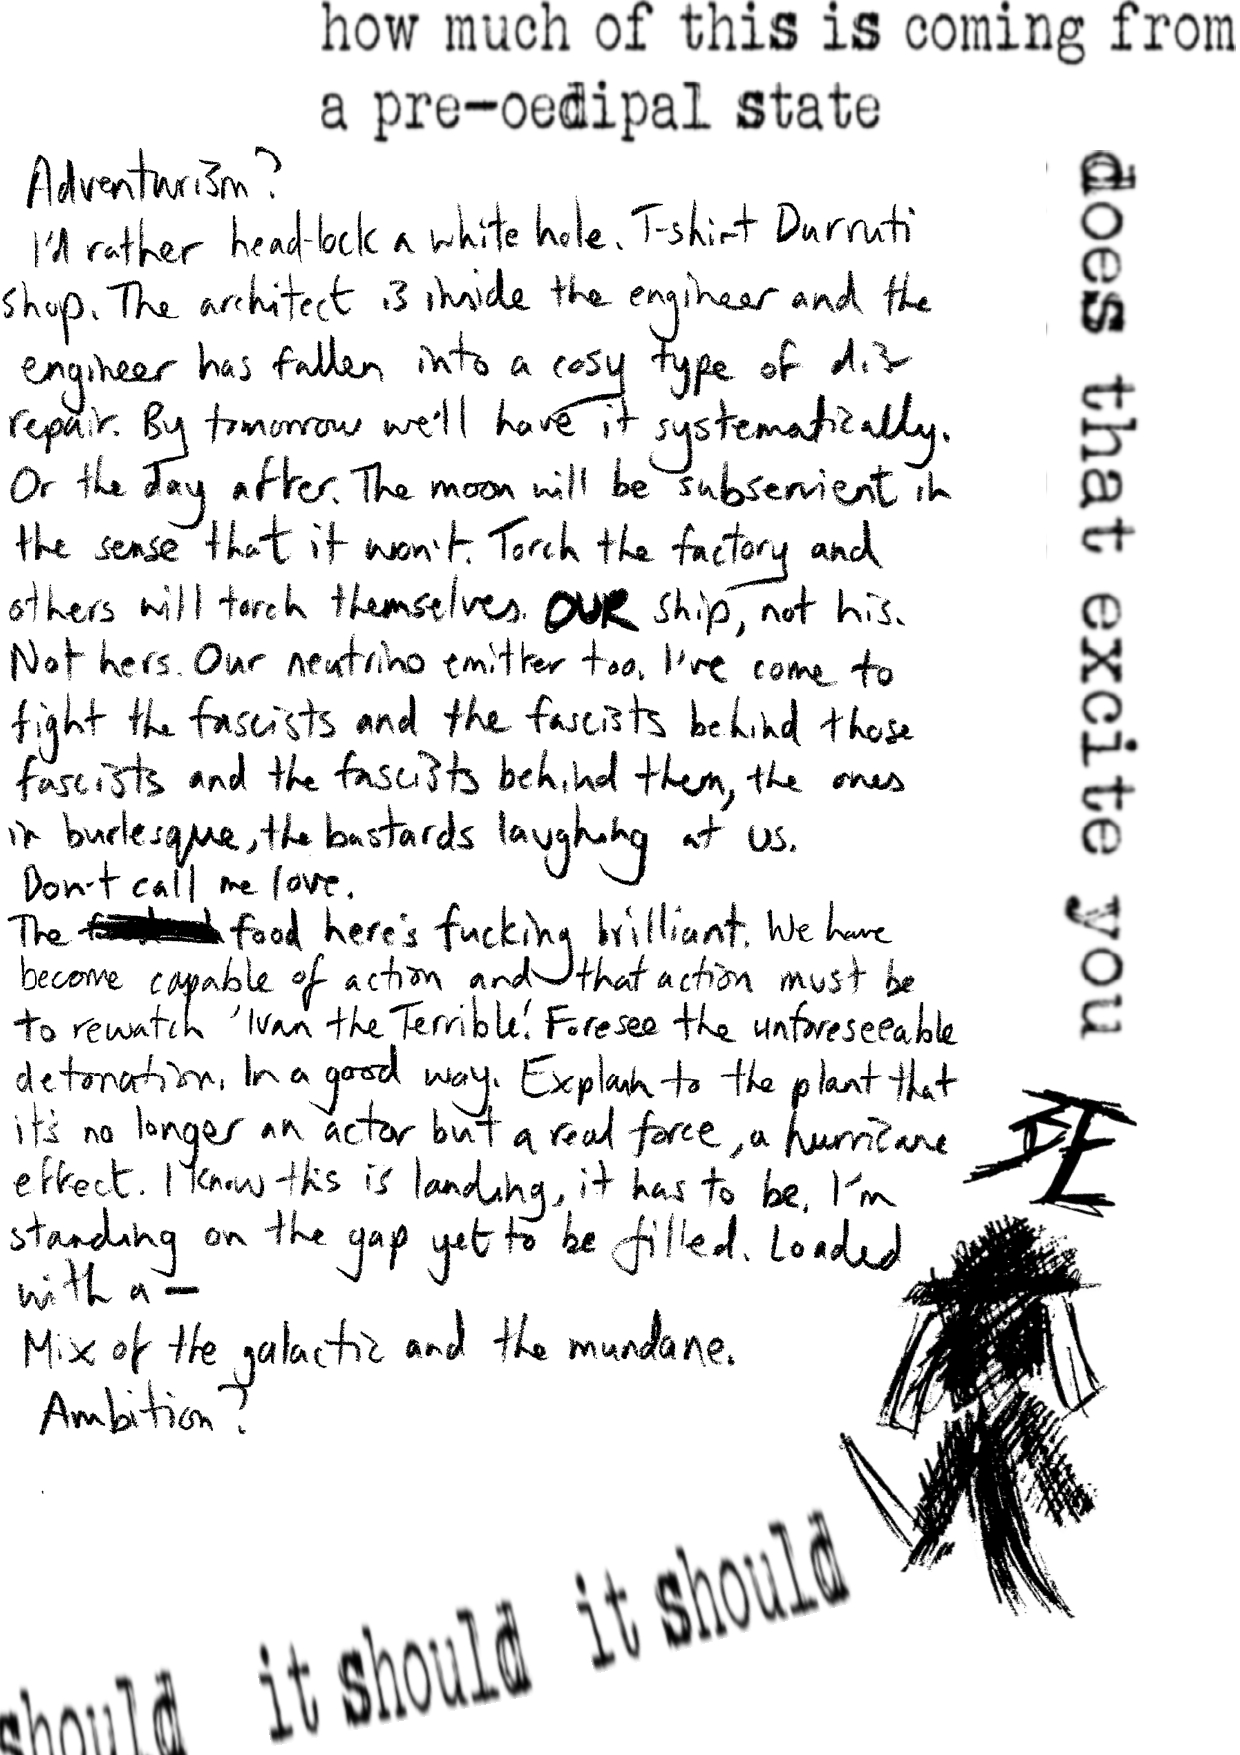 how much of this is coming from
a pre-oedipal state
Adventurism?
I'd rather head-lock a white hole. T-shirt Durruti
shop. The architect is inside the engineer and the
engineer has fallen into a cosy type of dis
repair. By tomorrow we'll have it systematically.
Or the day after. The moon will be subservient in
the sense that it won't. Torch the factory and
others will torch themselves. OUR ship, not his.
Not hers. Our neutrino emitter too. I've come to
fight the fascists and the fascists behind those
fascists and the fascists behind them, the ones
in burlesque, the bastards laughing at us.
Don't call me love.
The food here's fucking brilliant. We have
become capable of action and that action must be
to rewatch 'Ivan the Terrible'. Foresee the unforeseeable
detonation. In a good way. Explain to the plant that
it's no longer an actor but a real force, a hurricane
effect. I know this is landing, it has to be. I'm
standing on the gap yet to be filled. Loaded
with a —
Mix of the galactic and the mundane.
Ambition?
does that excite you
should it should it should